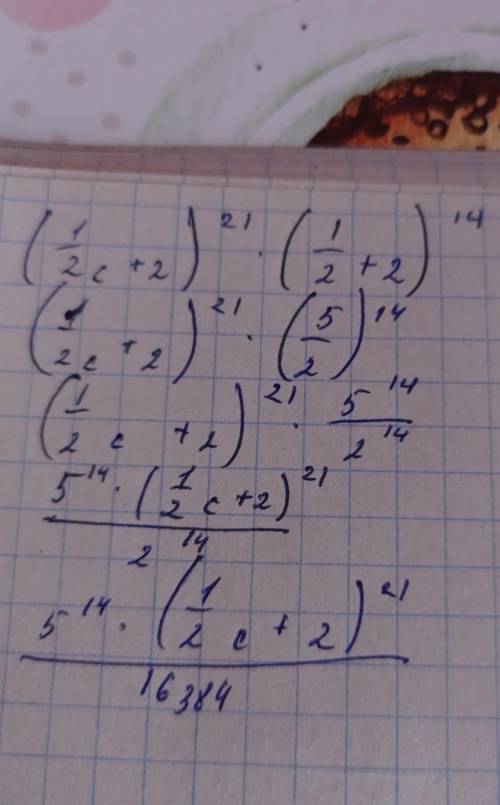 (1/2 c + 2)^21 · (1/2 + 2)^14
(1/2 c + 2)^21 · (5/2)^14
(1/2 c + 2)^21 · 5^14/2^14
5^14 · (1/2 c + 2)^21 / 2^14
5^14 · (1/2 c + 2)^21 / 16384